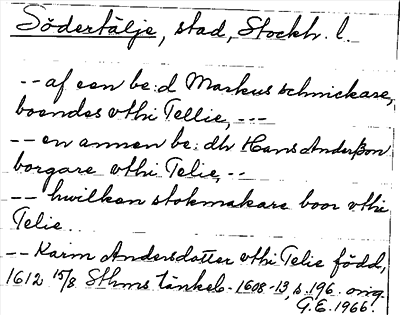 Södertälje, stad, Stockh. l.
-- af een be:d Markus schnickare,
boendes vthi Tellie, ---
-- en annen be:dh Hans Anderßon
borgare vthi Telie, --
-- hwilken stokmakare boor vthi
Telie.
-- Karin Andersdotter vthi Telie född,
1612 15/8 Sthms tänkeb. 1608-13, s. 196. orig.
G.E. 1966.